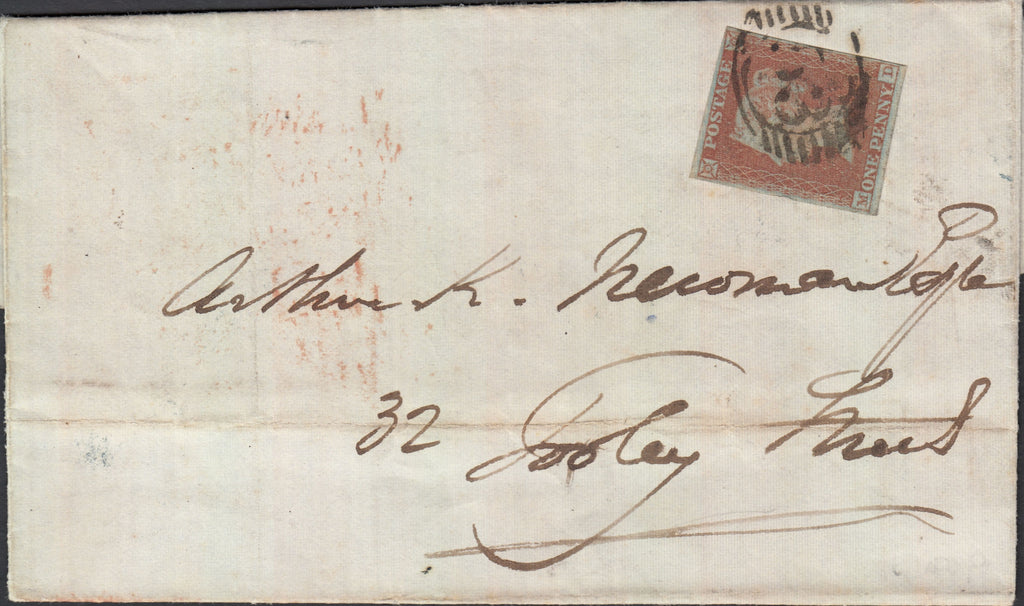 POSTAGE
ONE PENNY
M D
Arthur K. Newman Esqre
32 Tooley Street